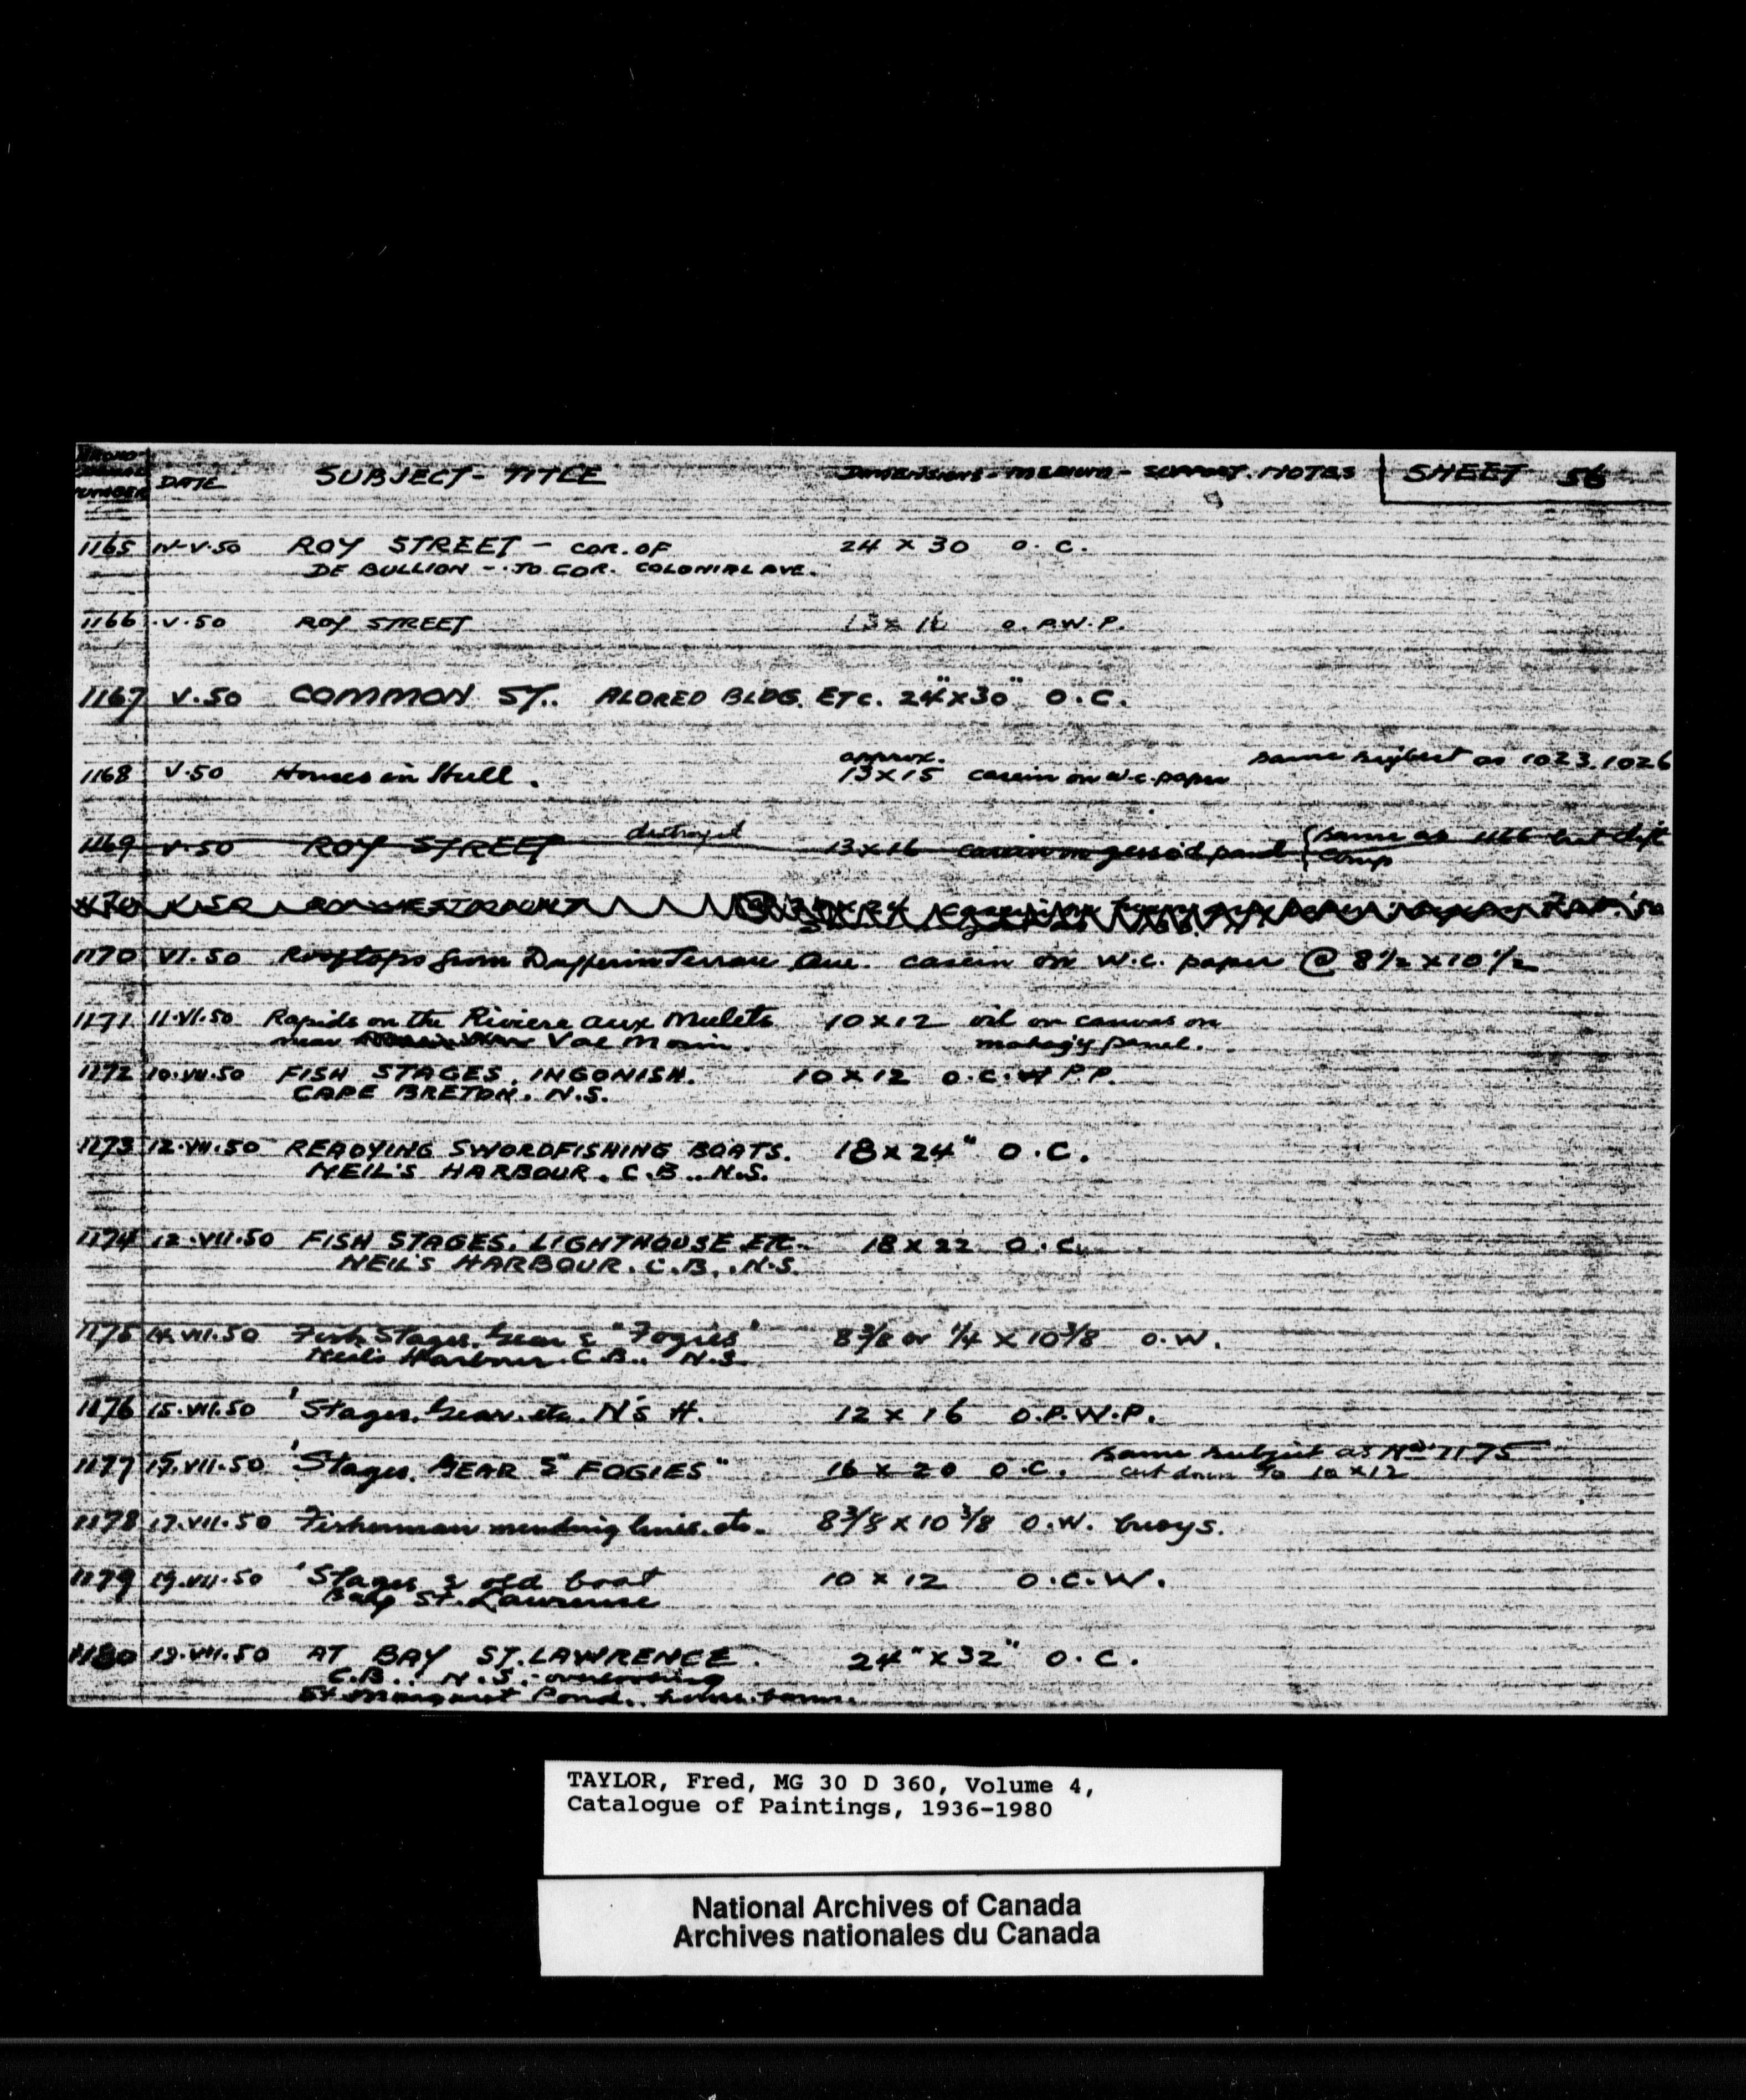 CHRONO-
LOGICAL
NUMBER DATE SUBJECT - TITLE DIMENSIONS - MEDIUM - SUPPORT. NOTES SHEET 56
1165 IV-V.50 ROY STREET - COR. OF 24 x 30 O.C.
DE BULLION - TO COR. COLONIAL AVE.
1166 .V.50 ROY STREET 13 x 16 O.P.W.P.
1167 V.50 COMMON ST.. ALDRED BLDG. ETC. 24" x 30" O.C.
approx. same subject as 1023. 1026
1168 V.50 Houses in Hull. 13 x 15 casein on w.c. paper
destroyed same as 1166 but diff
1169 V.50 ROY STREET 13 x 16 casein on gesso'd panel comp
1170 VI.50 Rooftops from Dufferin Terrace Que. casein on w.c. paper @ 8 1/2 x 10 1/2
1171 11.VI.50 Rapids on the Riviere aux Mulets 10 x 12 oil on canvas on
near Val Morin. mahog'y panel.
1172 10.VII.50 FISH STAGES. INGONISH. 10 x 12 O.C.W.P.P.
CAPE BRETON. N.S.
1173 12.VII.50 READYING SWORDFISHING BOATS. 18 x 24" O.C.
NEIL'S HARBOUR. C.B.. N.S.
1174 12.VII.50 FISH STAGES. LIGHTHOUSE ETC. 18 x 22 O.C.
NEIL'S HARBOUR. C.B.. N.S.
1175 14.VII.50 Fish Stages. Gear & "Fogies" 8 3/8 or 1/4 x 10 3/8 O.W.
Neil's Harbour. C.B.. N.S.
1176 15.VII.50 'Stages. Gear. etc. N's H. 12 x 16 O.P.W.P.
same subject as No 1175
1177 15.VII.50 'Stages. GEAR & "FOGIES" 16 x 20 O.C. cut down to 10 x 12
1178 17.VII.50 Fisherman mending lines. etc. 8 3/8 x 10 3/8 O.W. buoys.
1179 19.VII.50 'Stages & old boat 10 x 12 O.C.W.
Bay St. Lawrence
1180 19.VII.50 AT BAY ST. LAWRENCE. 24" x 32" O.C.
C.B.. N.S. - overlooking
St Margaret Pond.
TAYLOR, Fred, MG 30 D 360, Volume 4,
Catalogue of Paintings, 1936-1980
National Archives of Canada
Archives nationales du Canada